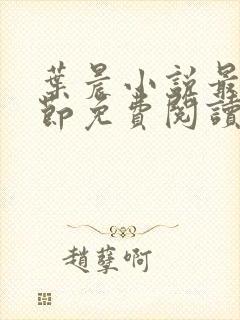 葉晨小說最
節免費閱讀
趙孽啊